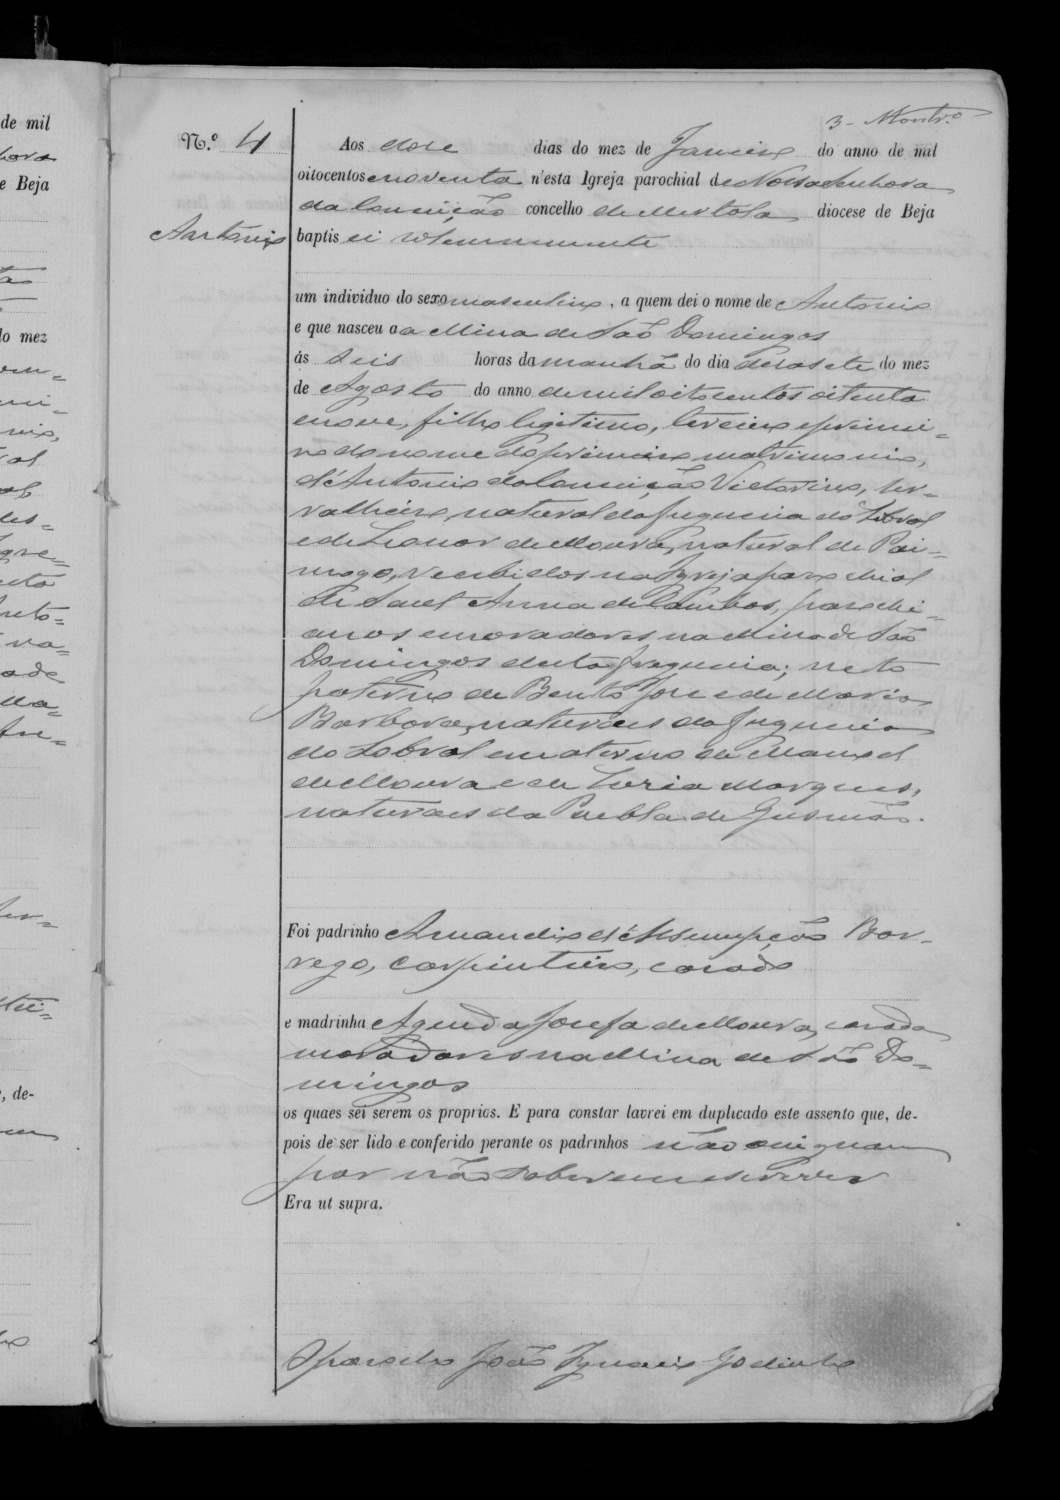 3 - Montr.º
N.º 4 Aos dose dias do mez de Janeiro do anno de mil
oitocentos e noventa n'esta Igreja parochial de Nossa Senhora
da Conceição concelho de Mertola diocese de Beja
Antonio baptisei solemnemente
um individuo do sexo masculino, a quem dei o nome de Antonio
e que nasceu a a Mina de São Domingos
ás seis horas da manhã do dia desasete do mez
de Agosto do anno de mil oitocentos oitenta
e nove, filho ligitimo, terceiro e primei-
ro do nome do primeiro matrimonio,
d'Antonio da Conceição Victorino, ser-
ralheiro, natural da freguesia do Sobral
e de Leonor de Moura, natural de Pai-
mogo, recebidos na Igreja parochial
de Sant Anna de Cambas, parochi-
anos e moradores na Mina de São
Domingos desta freguesia; neto
paterno de Bento José e de Maria
Barbora, naturaes da freguesia
do Sobral e materno de Manoel
de Moura e de Luzia Marques,
naturaes da Puebla de Gusmão.
Foi padrinho Amandio d'Assumpção Bor-
rego, carpinteiro, casado
e madrinha Agueda Josefa de Moura, casada
moradores na Mina de São Do-
mingos
os quaes sei serem os proprios. E para constar lavrei em duplicado este assento que, de-
pois de ser lido e conferido perante os padrinhos não assignam
por não saberem escrever
Era ut supra.
O parocho João Ignacio Godinho
de mil
e Beja
do mez
, de-